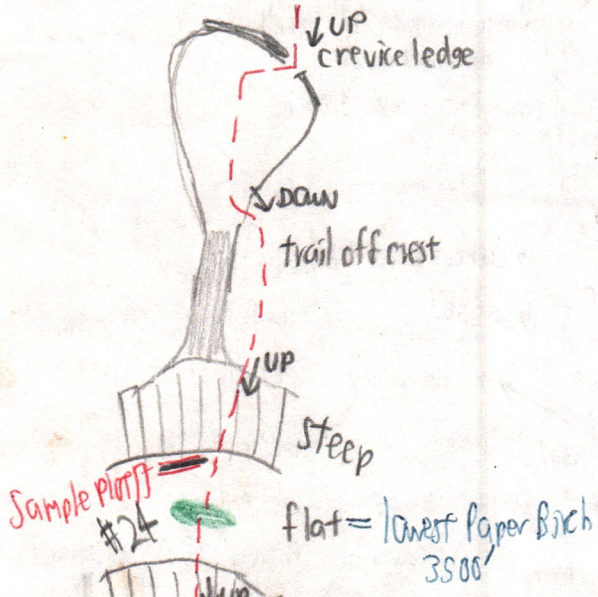 UP
crevice ledge
DOWN
trail off crest
UP
steep
Sample Plot
#24
flat = lowest Paper Birch
3500'
UP